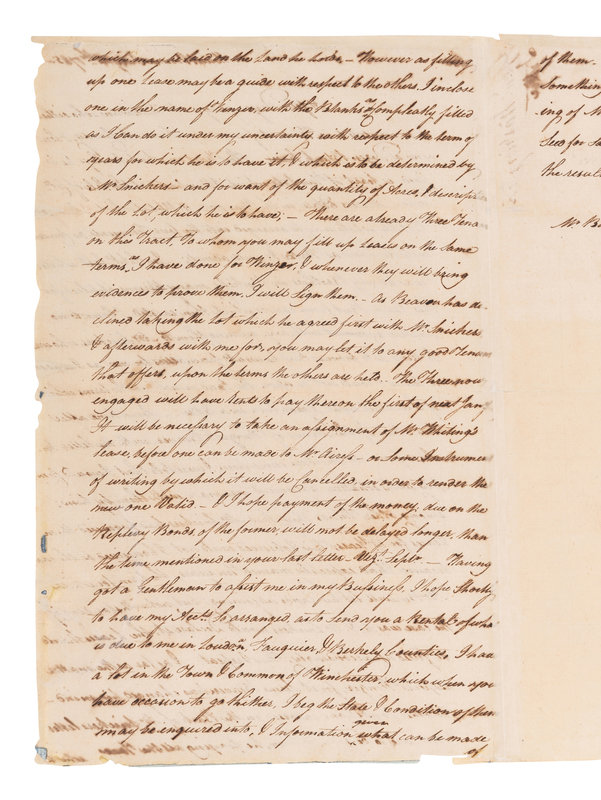 which may be laid on the Land he holds, – However as filling
up one Lease may be a guide with respect to the others, I inclose
one in the name of Winzer, with the Blanks as compleatly filled
as I can do it under my uncertainty with respect to the term of
years for which he is to have it, & which is to be determined by
Mr. Snickers – and for want of the quantity of Acres, & descrip
of the Lot, which he is to have; – There are already Three Tena
on this Tract, to whom you may fill up Leases on the same
terms as I have done for Winzer, & whenever they will bring
evidences to prove them, I will Sign them – As Beavon has de-
clined taking the Lot which he agreed first with Mr. Snickers
& afterwards with me for, you may let it to any good Tenan
that offers, upon the terms the others are held. The Three now
engaged will have rents to pay thereon the first of next Jany
It will be necessary to take an assignment of Mr. Whitings
lease, before one can be made to Mr. Airess – or some Instrumen
of writing by which it will be Cancelled, in order to render the
new one Valid – & I hope payment of the money, due on the
Replevy Bonds, of the former, will not be delayed longer, than
the time mentioned in your last letter – viz. Septr. – Having
got a Gentleman to assist me in my Business, I hope Shortly
to have my Acct.s so arranged, as to send you a Rental of wha
is due to me in Loudn. Fauquier, & Berkely Counties, I hav
a lot in the Town & Common of Winchester, which when you
have occasion to go thither, I beg the State & Condition of them
may be enquired into, & Information given what can be made
of
of them.
Somethin
ing of M
Seed for Sa
the resul
Mr. B